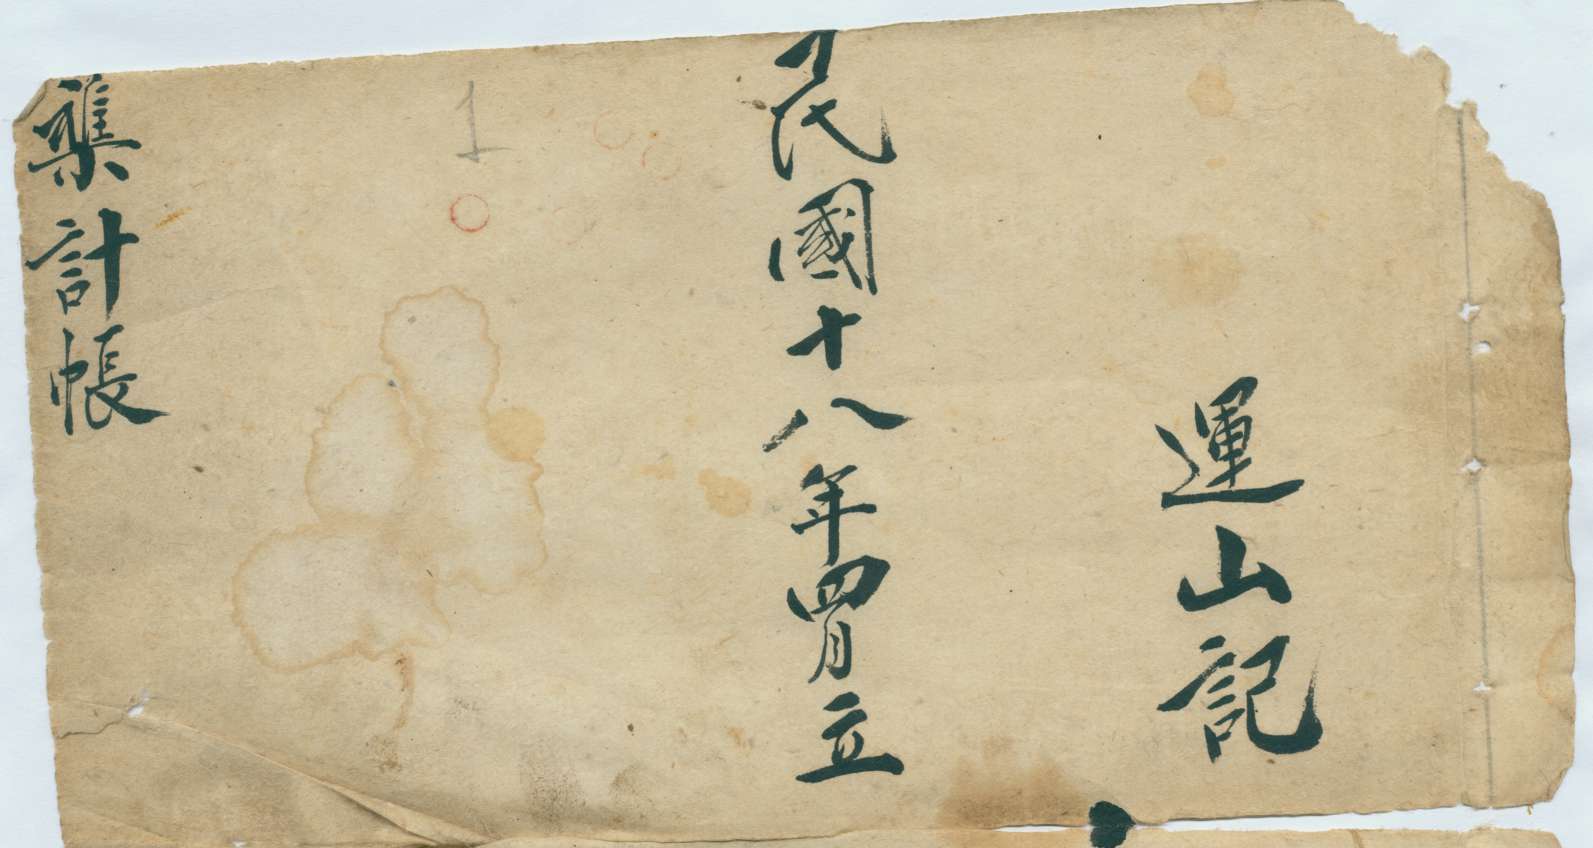 運山記
民國十八年四月立
1
雜計帳